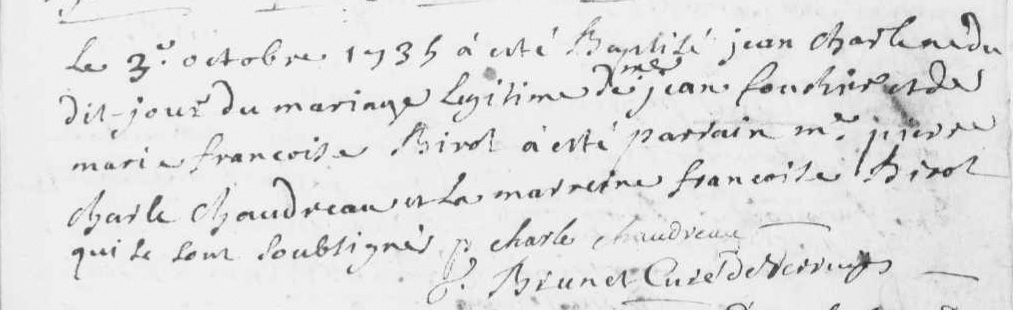 Le 3e. octobre 1735 à esté Baptisé jean charle né du
dit-jour du mariage legitime de me jean fouchier et de
marie francoise Birot à esté parrain me. pierre
charle chaudreau et la marreine francoise Birot
qui se sont soubsignés p charle chaudreau
J. Brunet Curé de Verruyes